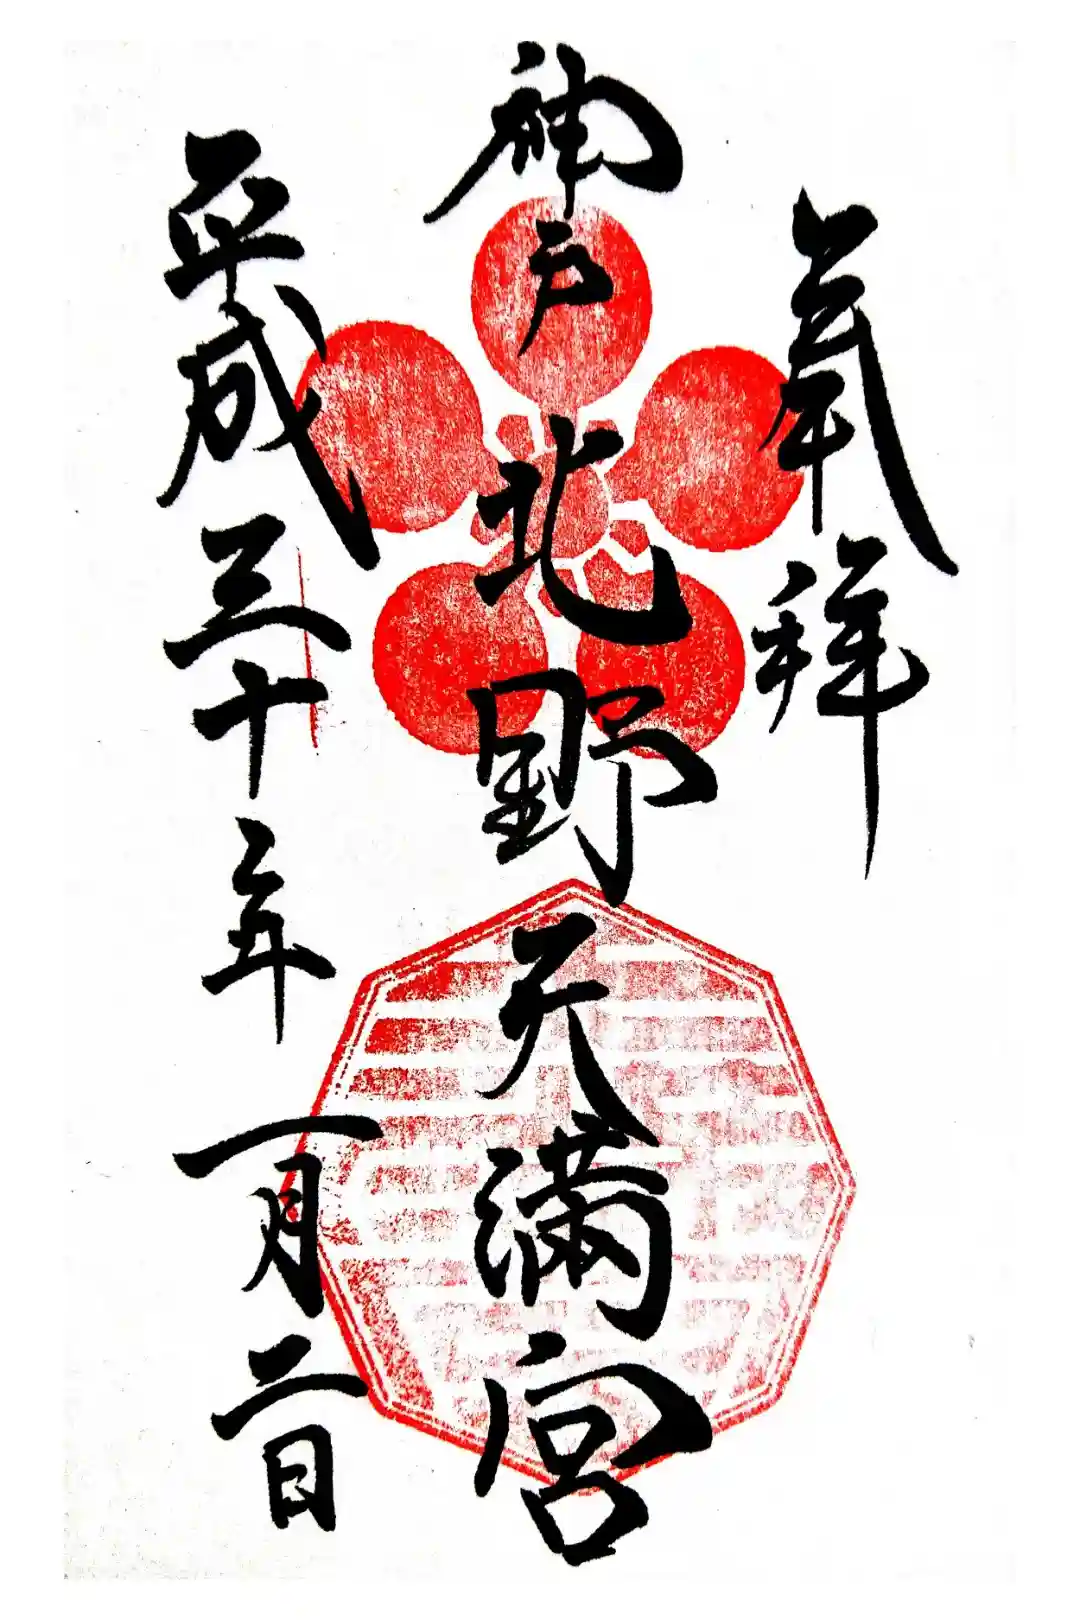 奉拝
神戸北野天満宮
平成三十年一月二日